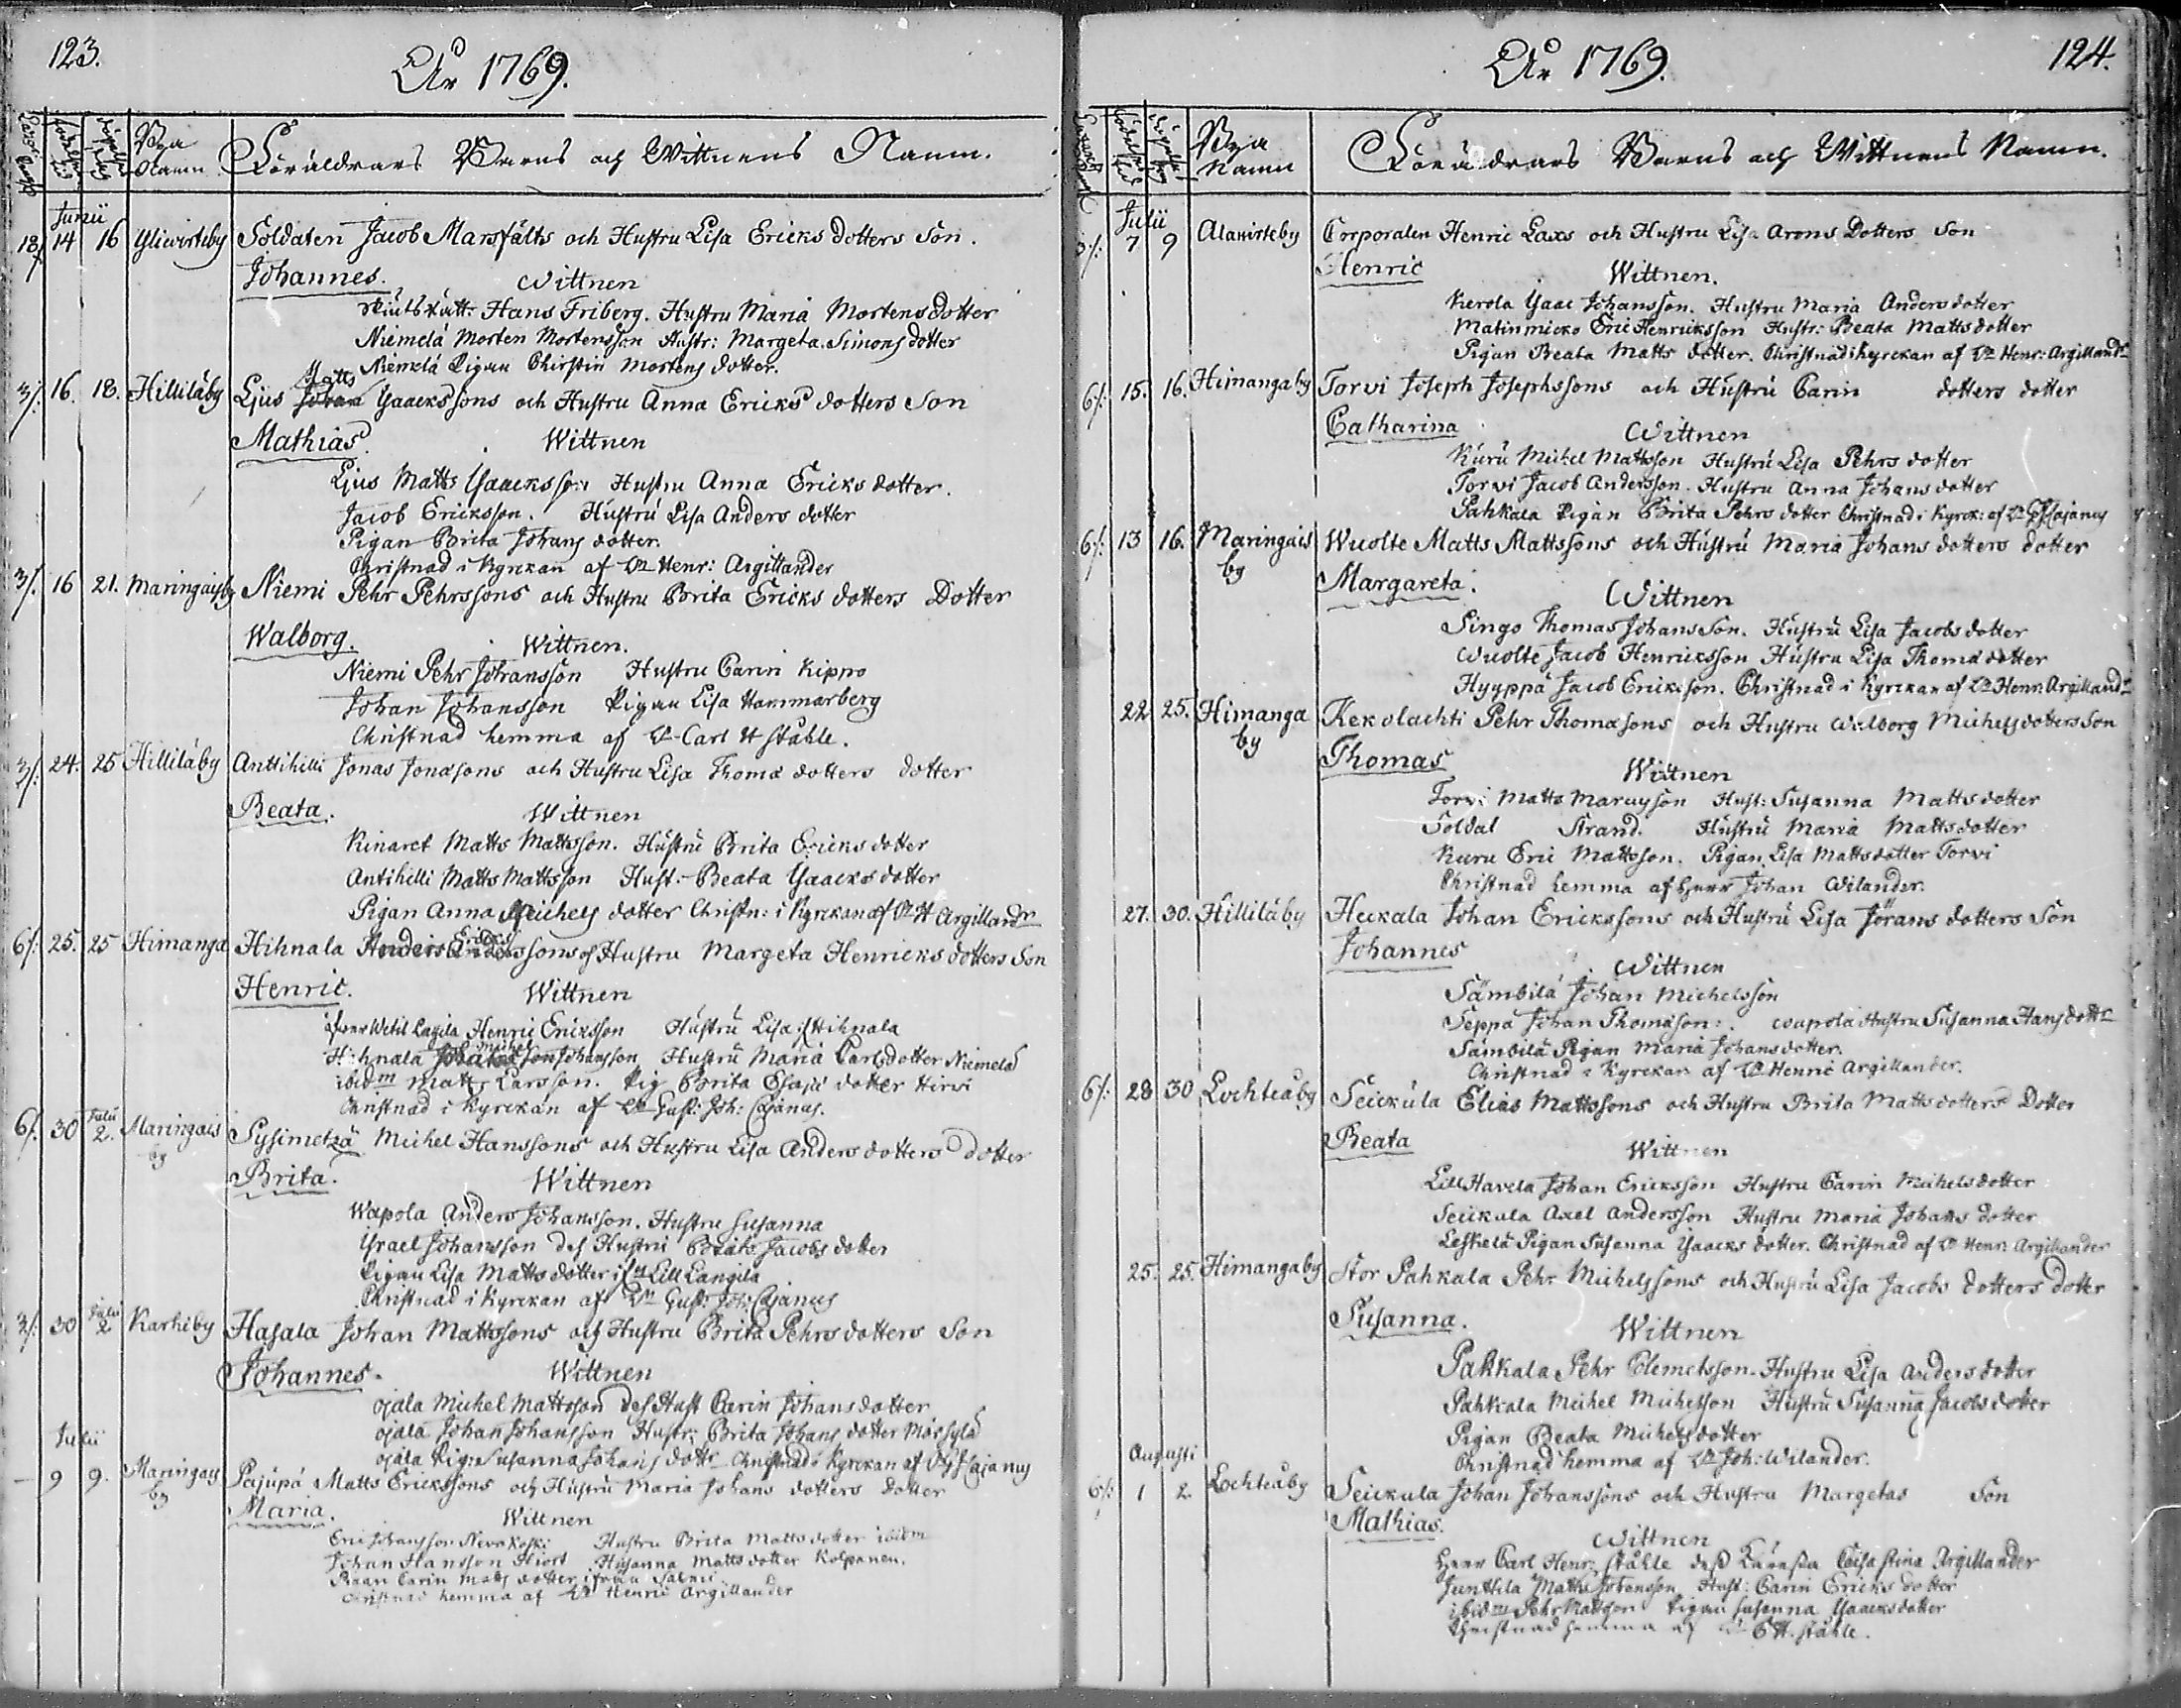 123.
År 1769.
Bya Namn
Föräldrars Barns och Wittnens Namn.
Junii
18/ 14 16 Yliwirteby Soldaten Jacob Marsfälts och Hustru Lisa Ericks dotters Son.
Johannes. Wittnen
Hans Friberg. Hustru Maria Mortens dotter
Niemelä Morten Mortensson Hustr: Margeta Simons dotter
Niemelä Pigan Christin Mortens dotter.
Matts
3/: 16. 18. Hilliläby Ljus Johan Ysaackssons och Hustru Anna Ericks dotters Son
Mathias. Wittnen
Ljus Matts Ysaacksson Hustru Anna Ericks dotter.
Jacob Ericksson. Hustru Lisa Anders dotter
Pigan Brita Johans dotter.
Christnad i Kyrckan af Dn Henr: Argillander
3/. 16 21. Maringaisby Niemi Pehr Pehrssons och Hustru Brita Ericks dotters Dotter
Walborg. Wittnen.
Niemi Pehr Johansson Hustru Carin Kippo
Johan Johansson Pigan Lisa Hammarberg
Christnad hemma af Dn Carl H Ståhle.
3/. 24. 25 Hilliläby Anttihilli Jonas Jonasons och Hustru Lisa Thomæ dotters dotter
Beata. Wittnen
Kinaret Matts Mattsson. Hustru Brita Ericks dotter
Antihilli Matts Mattsson Hust: Beata Ysaacks dotter
Pigan Anna Michels dotter Christn: i Kyrckan af Dn H Argilland:r
6/. 25. 25 Himanga Hihnala Anders Ericks sons och Hustru Margeta Henricks dotters Son
Henric. Wittnen
Henric Ericksson Hustru Lisa Hihnala
Michel
Hihnala Johansson Hustru Maria Carls dotter Niemelä
ibidm Matts Larsson. Pig Brita Esaiæ dotter Hirvi
Christnad i Kyrckan af Dn Gust: Joh: Cajanus.
6/. 30 Julii 2. Maringais by Sysimetzä Michel Hanssons och Hustru Lisa Anders dotters dotter
Brita. Wittnen
Wapola Anders Johansson. Hustru Susanna
Ysrael Johansson des Hustru Beata Jacobs dotter
Pigan Lisa Matts dotter ifrån Lill Langila
Christnad i Kyrckan af Dn Gust: Joh: Cajanus
3/. 30 Julii 2 Karhiby Hasala Johan Mattssons och Hustru Brita Pehrs dotters Son
Johannes. Wittnen
Ojala Michel Mattsson des Hust Carin Johans dotter
Ojala Johan Johansson Hustr: Brita Johans dotter Märsylä
Ojala Pig: Susanna Johans dottr Christnad i Kyrckan af Dn G J Cajanus
Julii
— 9 9. Maringais by Pajupä Matts Erickssons och Hustru Maria Johans dotters Dotter
Maria. Wittnen
Eric Johansson Nevakoski Hustru Brita Matts dotter ibidm
Johan Hansson Hiort Susanna Matts dotter Kolpanen.
Pigan Carin Matts dotter ifrån Salmi
Christnad hemma af Dn Henric Argillander
124.
År 1769.
Bya Namn
Föräldrars Barns och Wittnens Namn.
Julii
3/: 7 9 Alawirteby Corporalen Henric Laxs och Hustru Lisa Arons Dotters Son
Henric Wittnen.
Kerola Ysaac Johansson. Hustru Maria Anders dotter
Matinmicko Eric Henricksson Hustr: Beata Mattsdotter
Pigan Beata Matts dotter. Christnad i Kyrckan af Dn Henr: Argilland:r
6/: 15. 16. Himangaby Torvi Joseph Josephssons och Hustru Carin dotters dotter
Catharina Wittnen
Kuru Michel Mattsson Hustru Lisa Pehrs dotter
Torvi Jacob Andersson. Hustru Anna Johans dotter
Pahkala Pigan Brita Pehrs dotter Christnad i Kyrck: af Dn G J Cajanus
6/: 13 16. Maringais by Wuolte Matts Mattssons och Hustru Maria Johans dotters dotter
Margareta. Wittnen
Singo Thomas Johansson. Hustru Lisa Jacobs dotter
Wuolte Jacob Henricksson Hustru Lisa Thomæ dotter
Hyyppä Jacob Ericksson. Christnad i Kyrckan af Dn Henr: Argilland:r
22 25. Himanga by Kekolachti Pehr Thomasons och Hustru Walborg Michelsdotters Son
Thomas Wittnen
Torvi Matts Marcusson Hust: Susanna Matts dotter
Soldat Strand. Hustru Maria Matts dotter
Kuru Eric Mattsson. Pigan Lisa Mattsdotter Torvi
Christnad hemma af Herr Johan Wilander.
27. 30. Hilliläby Heckala Johan Erickssons och Hustru Lisa Jörans dotters Son
Johannes Wittnen
Sämbilä Johan Michelsson
Seppä Johan Thomason. Wapola Hustru Susanna Hans dottr
Sämbilä Pigan Maria Johansdotter.
Christnad i Kyrckan af Dn Henric Argillander.
6/: 28 30 Lochteåby Seickula Elias Mattssons och Hustru Brita Matts dotters Dotter
Beata Wittnen
Lill Havela Johan Ericksson Hustru Carin Michelsdotter
Seickula Axel Andersson Hustru Maria Johans dotter
Leskelä Pigan Susanna Ysaacks dotter. Christnad af Dn Henr: Argillander
25. 25. Himangaby Stor Pahkala Pehr Michelssons och Hustru Lisa Jacobs dotters dotter
Susanna. Wittnen
Pahkala Pehr Clemetsson. Hustru Lisa Anders dotter
Pahkala Michel Michelsson Hustru Susanna Jacobs dotter
Pigan Beata Michelsdotter
Christnad hemma af Dn Joh: Wilander.
Augusti
6/: 1 2 Lochteåby Seickula Johan Johanssons och Hustru Margetas Son
Mathias. Wittnen
Herr Carl Henr: Ståhle des Käresta Caisa Stina Argillander
Junttila Matts Johansson Hust: Carin Ericks dotter
ibidm Pehr Mattsson Pigan Susanna Ysaacksdotter
Christnad hemma af Dn C H. Ståhle.